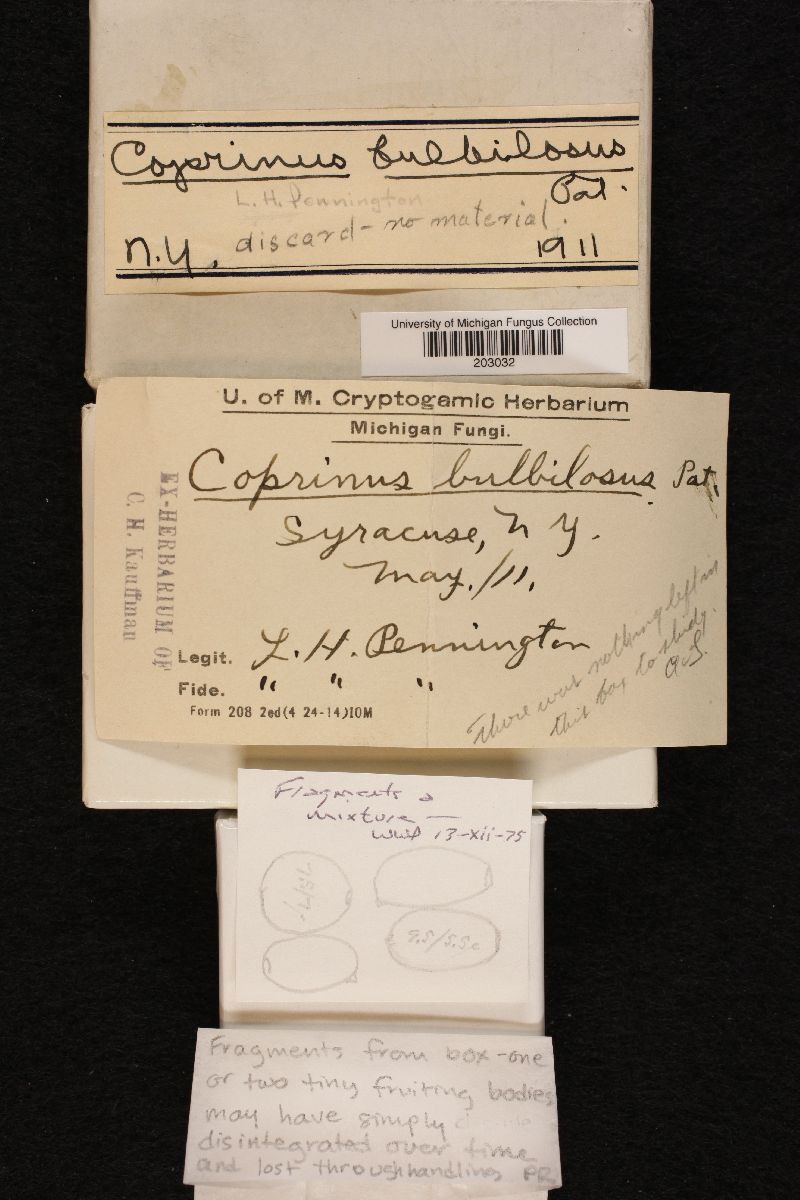 Coprinus bulbilosus
Pat.
L. H. Pennington
discard - no material.
N.Y. 1911
University of Michigan Fungus Collection
203032
U. of M. Cryptogamic Herbarium
Michigan Fungi.
Coprinus bulbilosus Pat.
Syracuse, N Y.
May./11.
EX-HERBARIUM OF
C. H. Kauffman
Legit. L. H. Pennington
Fide. " " "
Form 208 2ed(4 24-14)10M
There was nothing left in
this box to study.
Fragments a
mixture —
13-xii-75
Fragments from box - one
or two tiny fruiting bodies
may have simply
disintegrated over time
and lost through handling PR